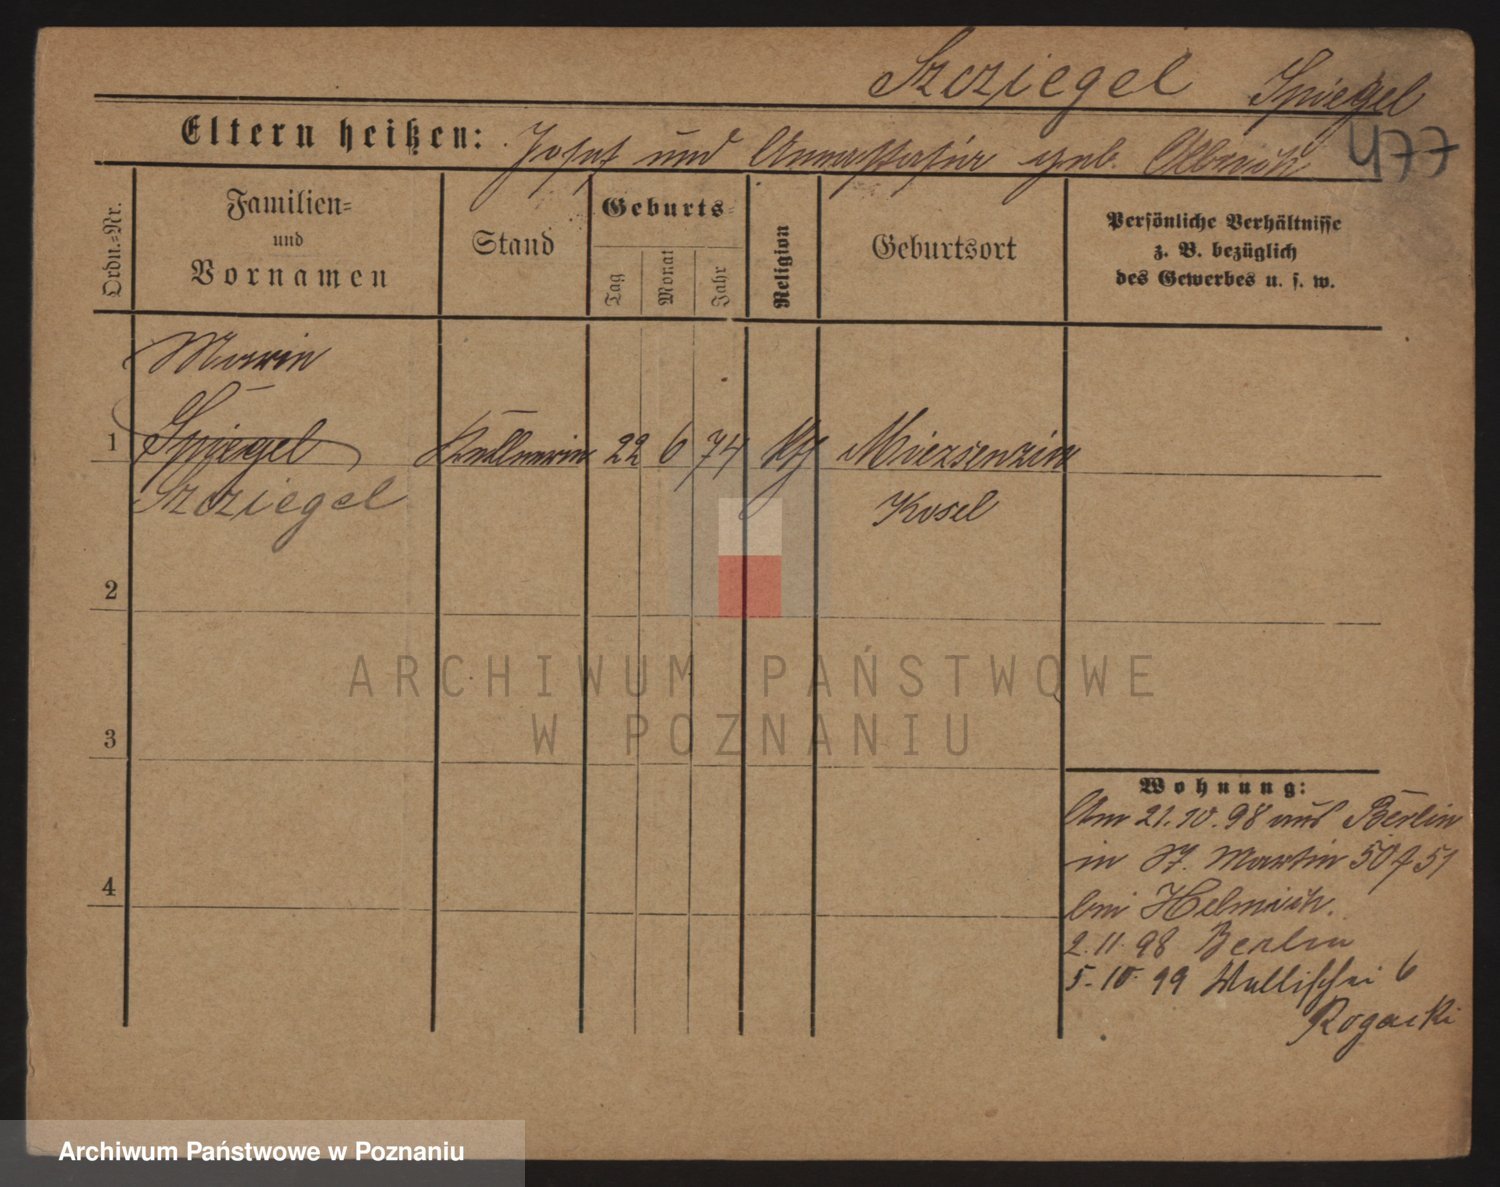 Szcziegel Spiegel
477
Eltern heißen: Josef und Annastasia geb. Olbrich
Ordn.=Nr.
Familien=
und
Vornamen
Stand
Geburts=
Tag
Monat
Jahr
Religion
Geburtsort
Persönliche Verhältnisse
z. B. bezüglich
des Gewerbes u. s. w.
Marie
1 Spiegel Kellnerin 22 6 74 kth
Szcziegel Kosel
2
3
4
Wohnung:
Am 21.10.98 aus Berlin
in St. Martin 50/51
bei Helmich.
2.11.98 Berlin
5.10.99 Wallischei 6
Rogacki
ARCHIWUM PAŃSTWOWE
W POZNANIU
Archiwum Państwowe w Poznaniu